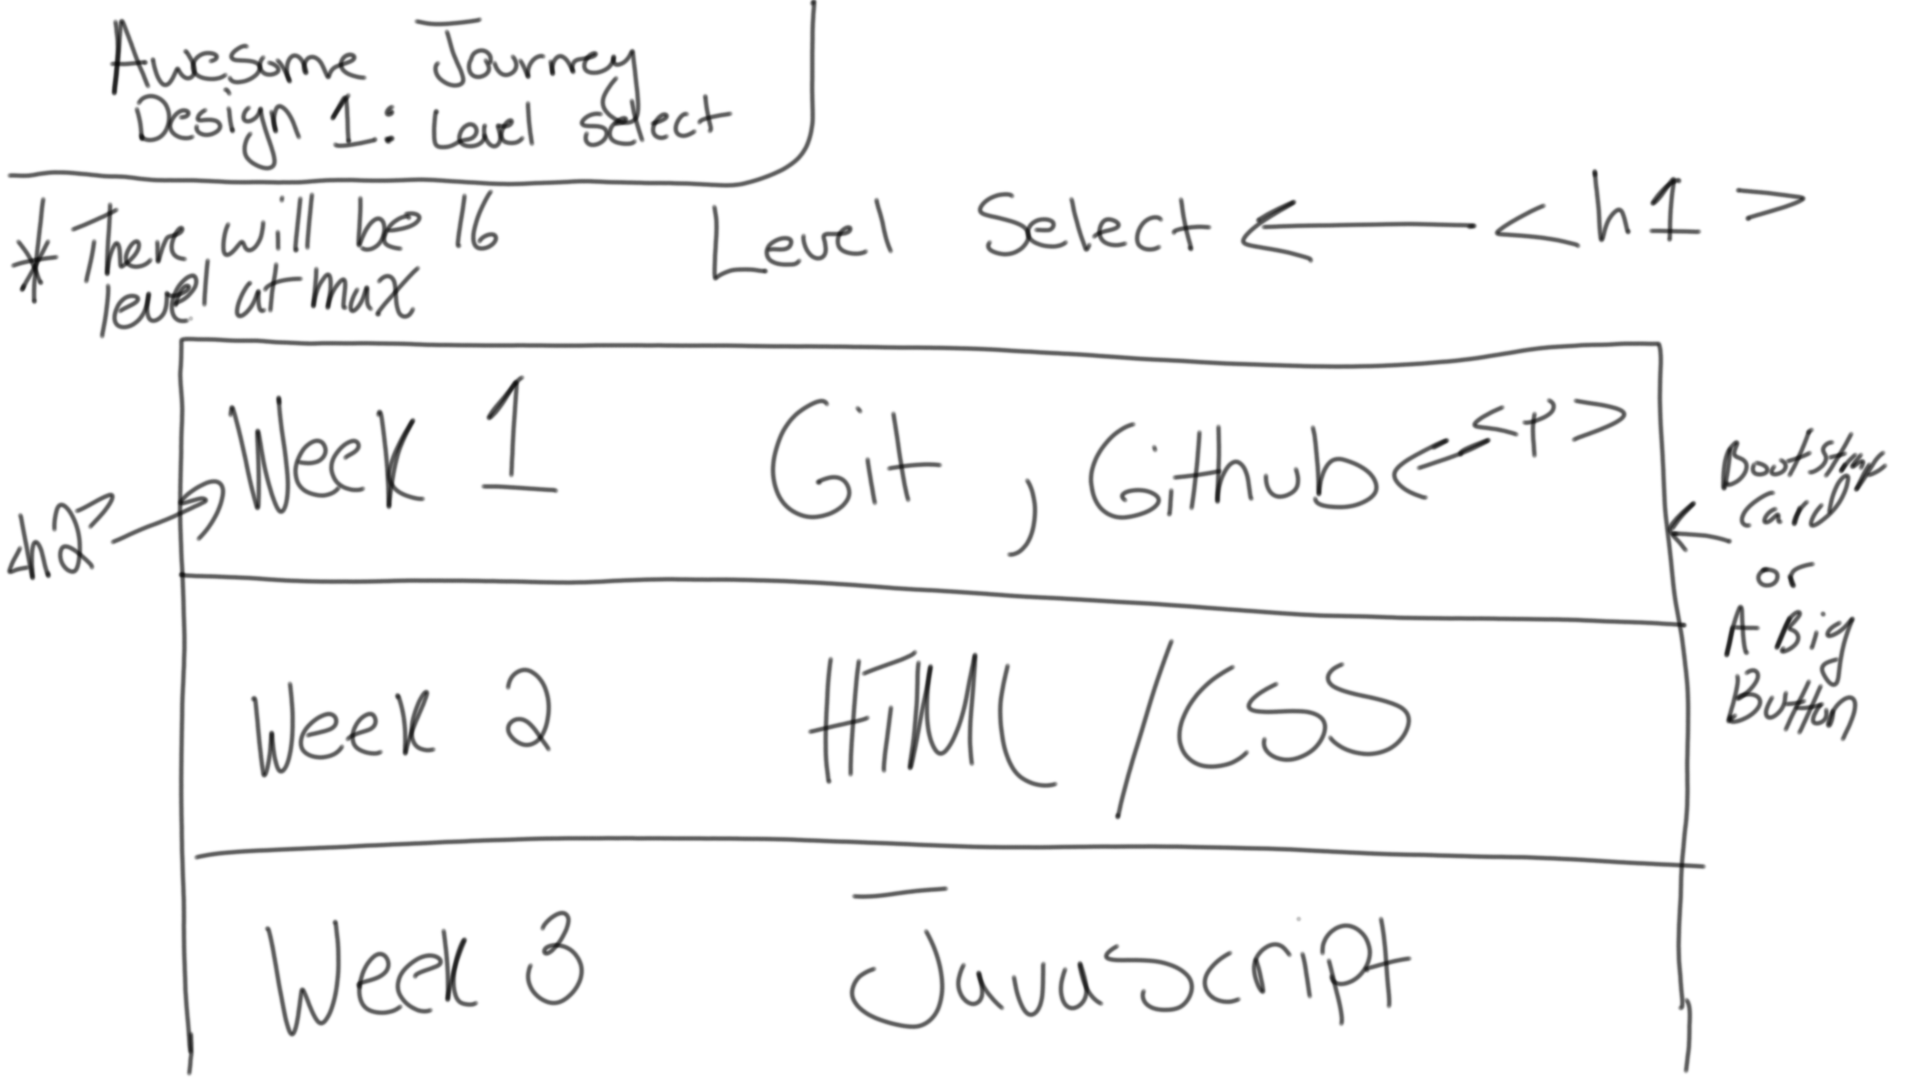 Awesome Journey
Design 1: Level select
* There will be 16
level at max
Level Select <h1>
Week 1 Git, Github <p>
<h2>
Bootstrap
card
or
A Big
Button
Week 2 HTML/CSS
Week 3 JavaScript